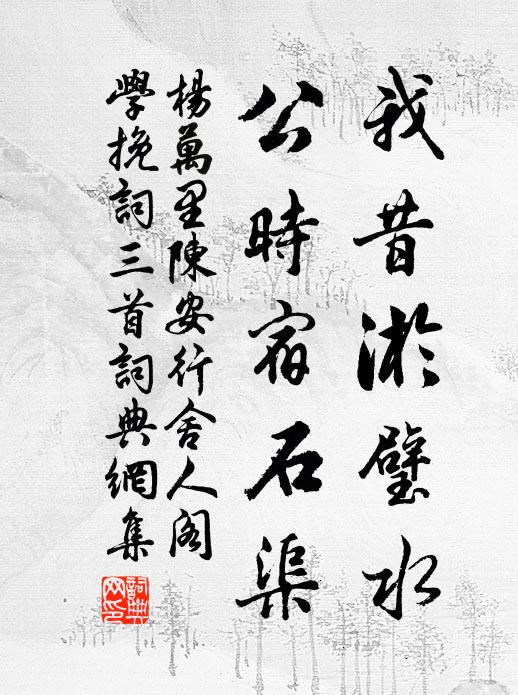 我昔游璧水
公時宿石渠
楊萬里陳安行舍人閣
學挽詞三首詞典網集